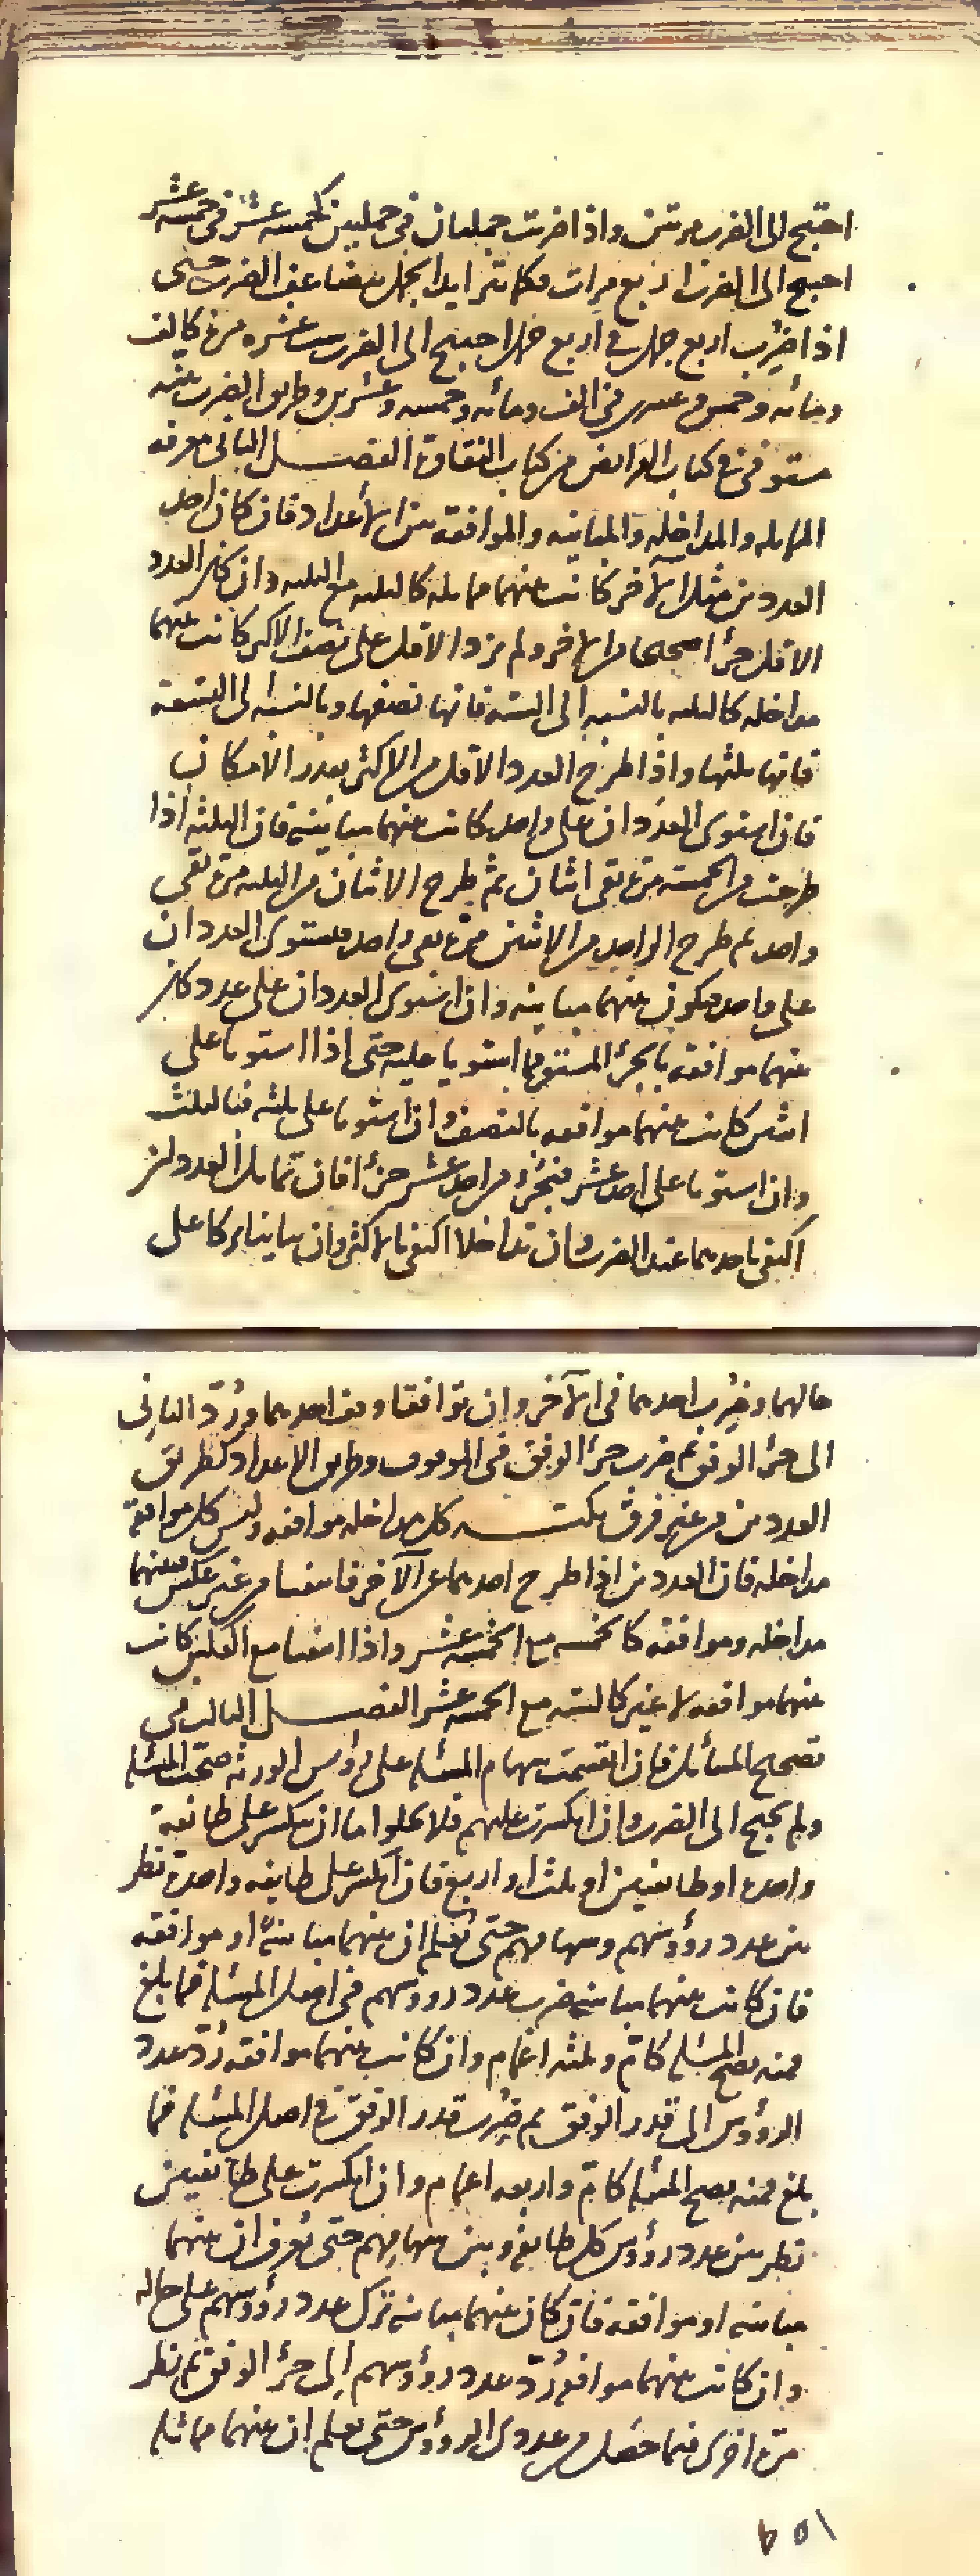 احتيج الى الضرب مرتين واذا ضربت جملتان في جملتين كخمسة عشر في خمسة عشر
احتيج الى الضرب اربع مرات وكلما تزايد الجمل يتضاعف الضرب حتى
اذا ضرب اربع جمل في اربع جمل احتيج الى الضرب ست عشره مرة كالف
ومائه وخمس وعشرين في الف ومائه وخمسه وعشرين وطريق الضرب
مستوفى في كتاب الفرائض من كتاب النقاوة الفصل الثاني معرفة
المماثله والمداخله والمباينه والموافقه بين الأعداد فان كان احد
العددين مثل الآخر كانت بينهما مماثله كالثلثه مع الثلثه وان كان العدد
الاقل جزأ صحيحا من الآخر ولم يزد الاقل على نصف الاكثر كانت بينهما
مداخله كالثلثه بالنسبه الى السته فانها نصفها وبالنسبه الى التسعة
فانها ثلثها واذا طرح العدد الاقل من الاكثر بقدر الامكان
فان استوى العددان على واحد كانت بينهما مباينة فان الثلثة اذا
طرحت من الخمسة مرة بقى اثنان ثم طرح الاثنان من الثلثه مرة بقى
واحد ثم طرح الواحد من الاثنين مرة بقى واحد فيستوى العددان
على واحد فيكون بينهما مباينه وان استوى العددان على عدد كان
بينهما موافقه بالجزء المستوفى استويا عليه حتى اذا استويا على
اثنين كانت بينهما موافقه بالنصف وان استويا على ثلثه فبالثلث
وان استويا على احد عشر فبجزء من احد عشر جزأ فان تماثل العددان
اكتفى باحدهما عند الضرب وان تداخلا اكتفى بالاكثر وان تباينا تركا على
حالهما وضرب احدهما في الآخر وان توافقا وقف احدهما ورد الثاني
الى جزء الوفق ثم ضرب جزء الوفق في الموقوف وطريق الاعداد كطريق
العددين من غير فرق نكتـــه كل مداخله موافقه وليس كل موافقة
مداخله فان العددين اذا طرح احدهما عن الآخر فافنيا من غير عكس فبينهما
مداخله وموافقه كالخمسه مع الخمسة عشر واذا افنيا مع العكس كانت
بينهما موافقه لا غير كالسته مع الخمسه عشر الفصـــل الثالث في
تصحيح المسائل فان انقسمت سهام المسئلة على رؤس الورثه صحت المسئلة
ولم يحتج الى الضرب وان انكسرت عليهم فلا يخلوا اما ان ينكسر على طائفة
واحدة او طائفتين او ثلث او اربع فان انكسر على طايفه واحدة نظر
بين عدد رؤوسهم وسهامهم حتى تعلم ان بينهما مباينة او موافقه
فان كانت بينهما مباينه ضرب عدد رؤوسهم في اصل المسئلة فما بلغ
فمنه يصح المسئلة كأم وثلثه اعمام وان كانت بينهما موافقه رد عدد
الرؤوس الى قدر الوفق ثم ضرب قدر الوفق في اصل المسئلة فما
بلغ فمنه يصح المسئلة كأم واربعه اعمام وان انكسرت على طائفتين
نظر بين عدد رؤوس كل طايفة وبين سهامهم حتى نعرف ان بينهما
مباينه او موافقه فان كان بينهما مباينه ترك عدد رؤوسهم على حاله
وان كانت بينهما موافقة رد عدد رؤوسهم الى جزء الوفق ثم نظر
مرة اخرى فيما حصل من عددى الرؤوس حتى يعلم ان بينهما مماثلة